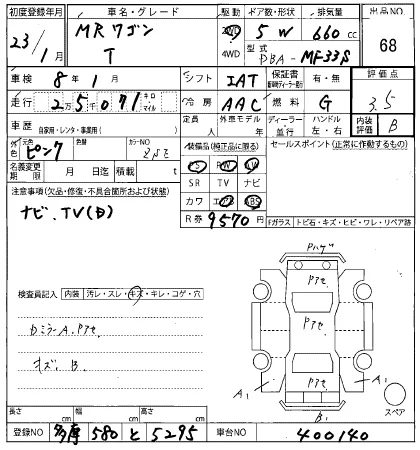 初度登録年月 車名・グレード 駆動 ドア数・形状 排気量 出品NO
23/1月 MRワゴン T 2WD 4WD 5 W 660cc 68
型式 DBA-MF33S
車検 8年1月 シフト IAT 保証書 (新車時ディーラー発行) 有・無 評価点
走行 25071 キロ マイル 冷房 AAC 燃料 G 3.5
車歴 自家用・レンタ・事業用( ) 定員 人 外車モデル 年 ディーラー 並行 ハンドル 左・右 内装評価 B
外色 元色 ピンク 色替 カラーNO ZSE
装備品(純正品に限る) セールスポイント(正常に作動するもの)
名義変更期限 月 日迄 積載量 t
PS PW AW
SR TV ナビ
カワ エアB ABS
R券 9570円
注意事項(欠品・修復・不具合箇所および状態)
ナビ、TV(B)
Fガラス トビ石・キズ・ヒビ・ワレ・リペア跡
検査員記入 内装 汚レ・スレ・キズ・キレ・コゲ・穴
カミラーA、Pアセ
キズ B.
Pハゲ
Pアセ
Pアセ
Pアセ
A1
A1
B1
スペア
長さ cm 幅 cm 高さ cm
登録NO 多摩 580 と 5295 車台NO 400140